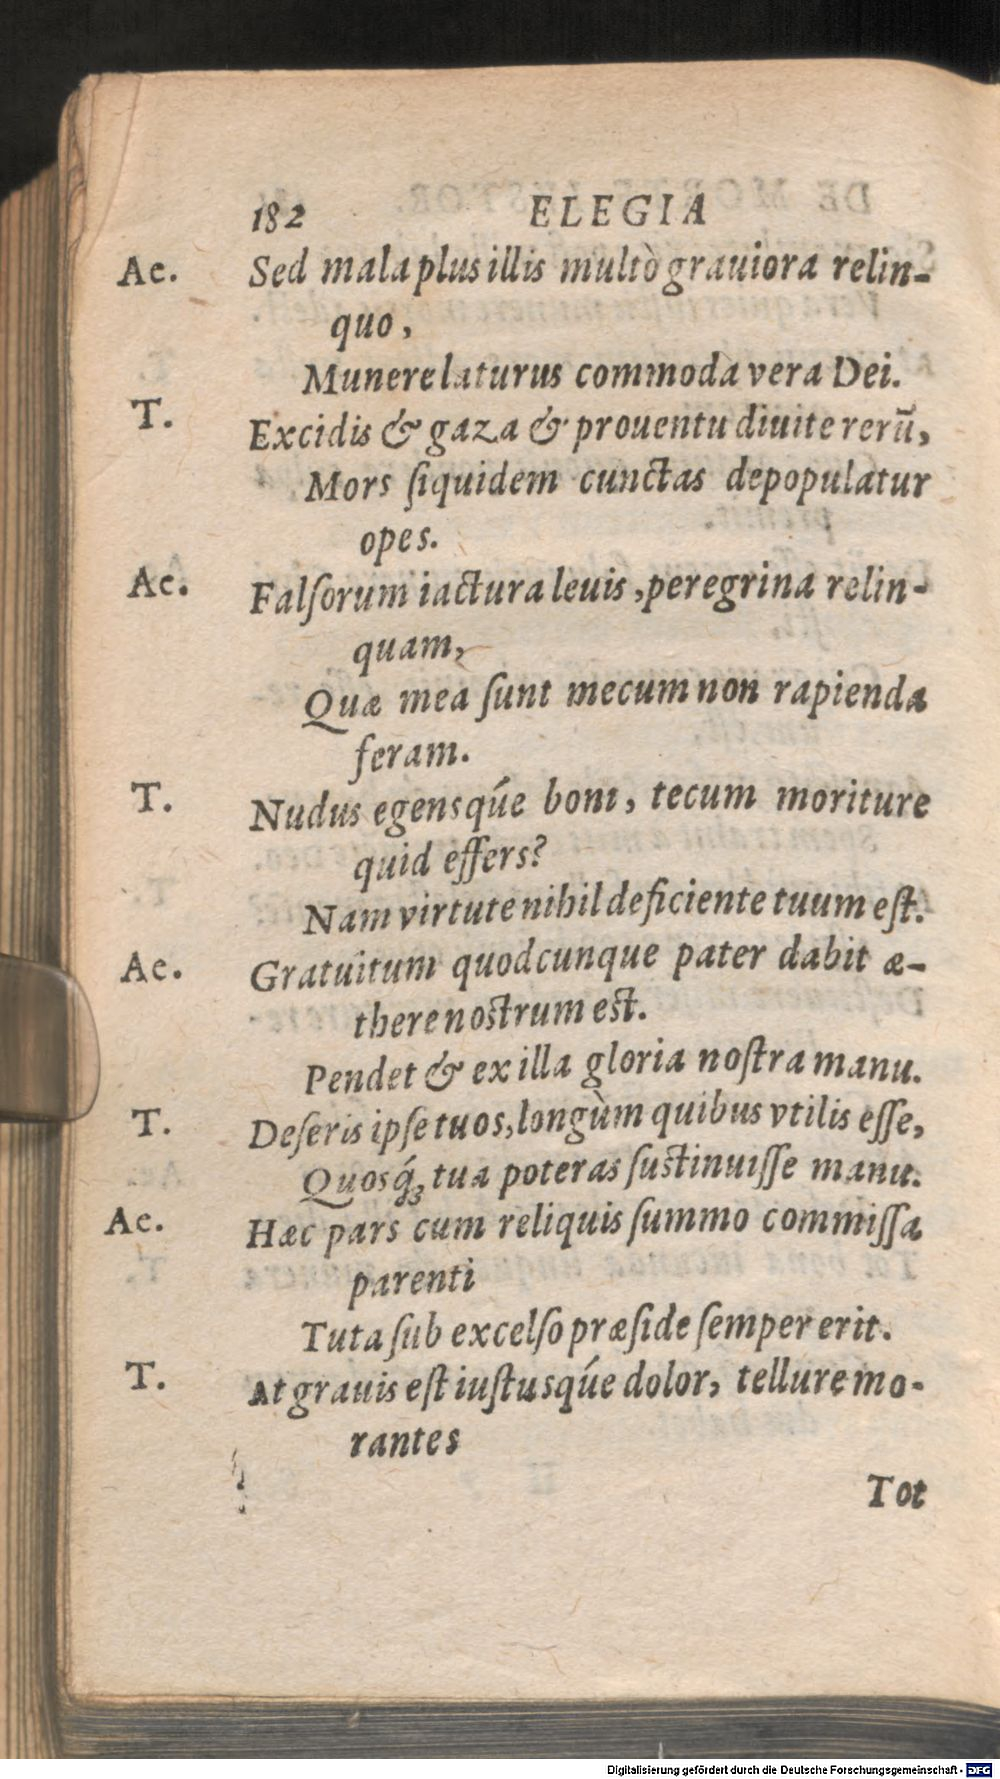 182 ELEGIA
Ae. Sed mala plus illis multò grauiora relin-
quo,
Munere laturus commoda vera Dei.
T. Excidis & gaza & prouentu diuite rerũ,
Mors ſiquidem cunctas depopulatur
opes.
Ae. Falſorum iactura leuis, peregrina relin-
quam,
Quæ mea ſunt mecum non rapienda
feram.
T. Nudus egensqúe boni, tecum moriture
quid effers?
Nam virtute nihil deficiente tuum eſt.
Ae. Gratuitum quodcunque pater dabit æ-
there nostrum est.
Pendet & ex illa gloria noſtra manu.
T. Deſeris ipſe tuos, longùm quibus vtilis eſſe,
Quosq́; tua poteras ſustinuiſſe manu.
Ae. Hæc pars cum reliquis ſummo commiſſa
parenti
Tuta ſub excelſo præſide ſemper erit.
T. At grauis eſt iuſtusqúe dolor, tellure mo-
rantes
Tot
Digitalisierung gefördert durch die Deutsche Forschungsgemeinschaft - DFG